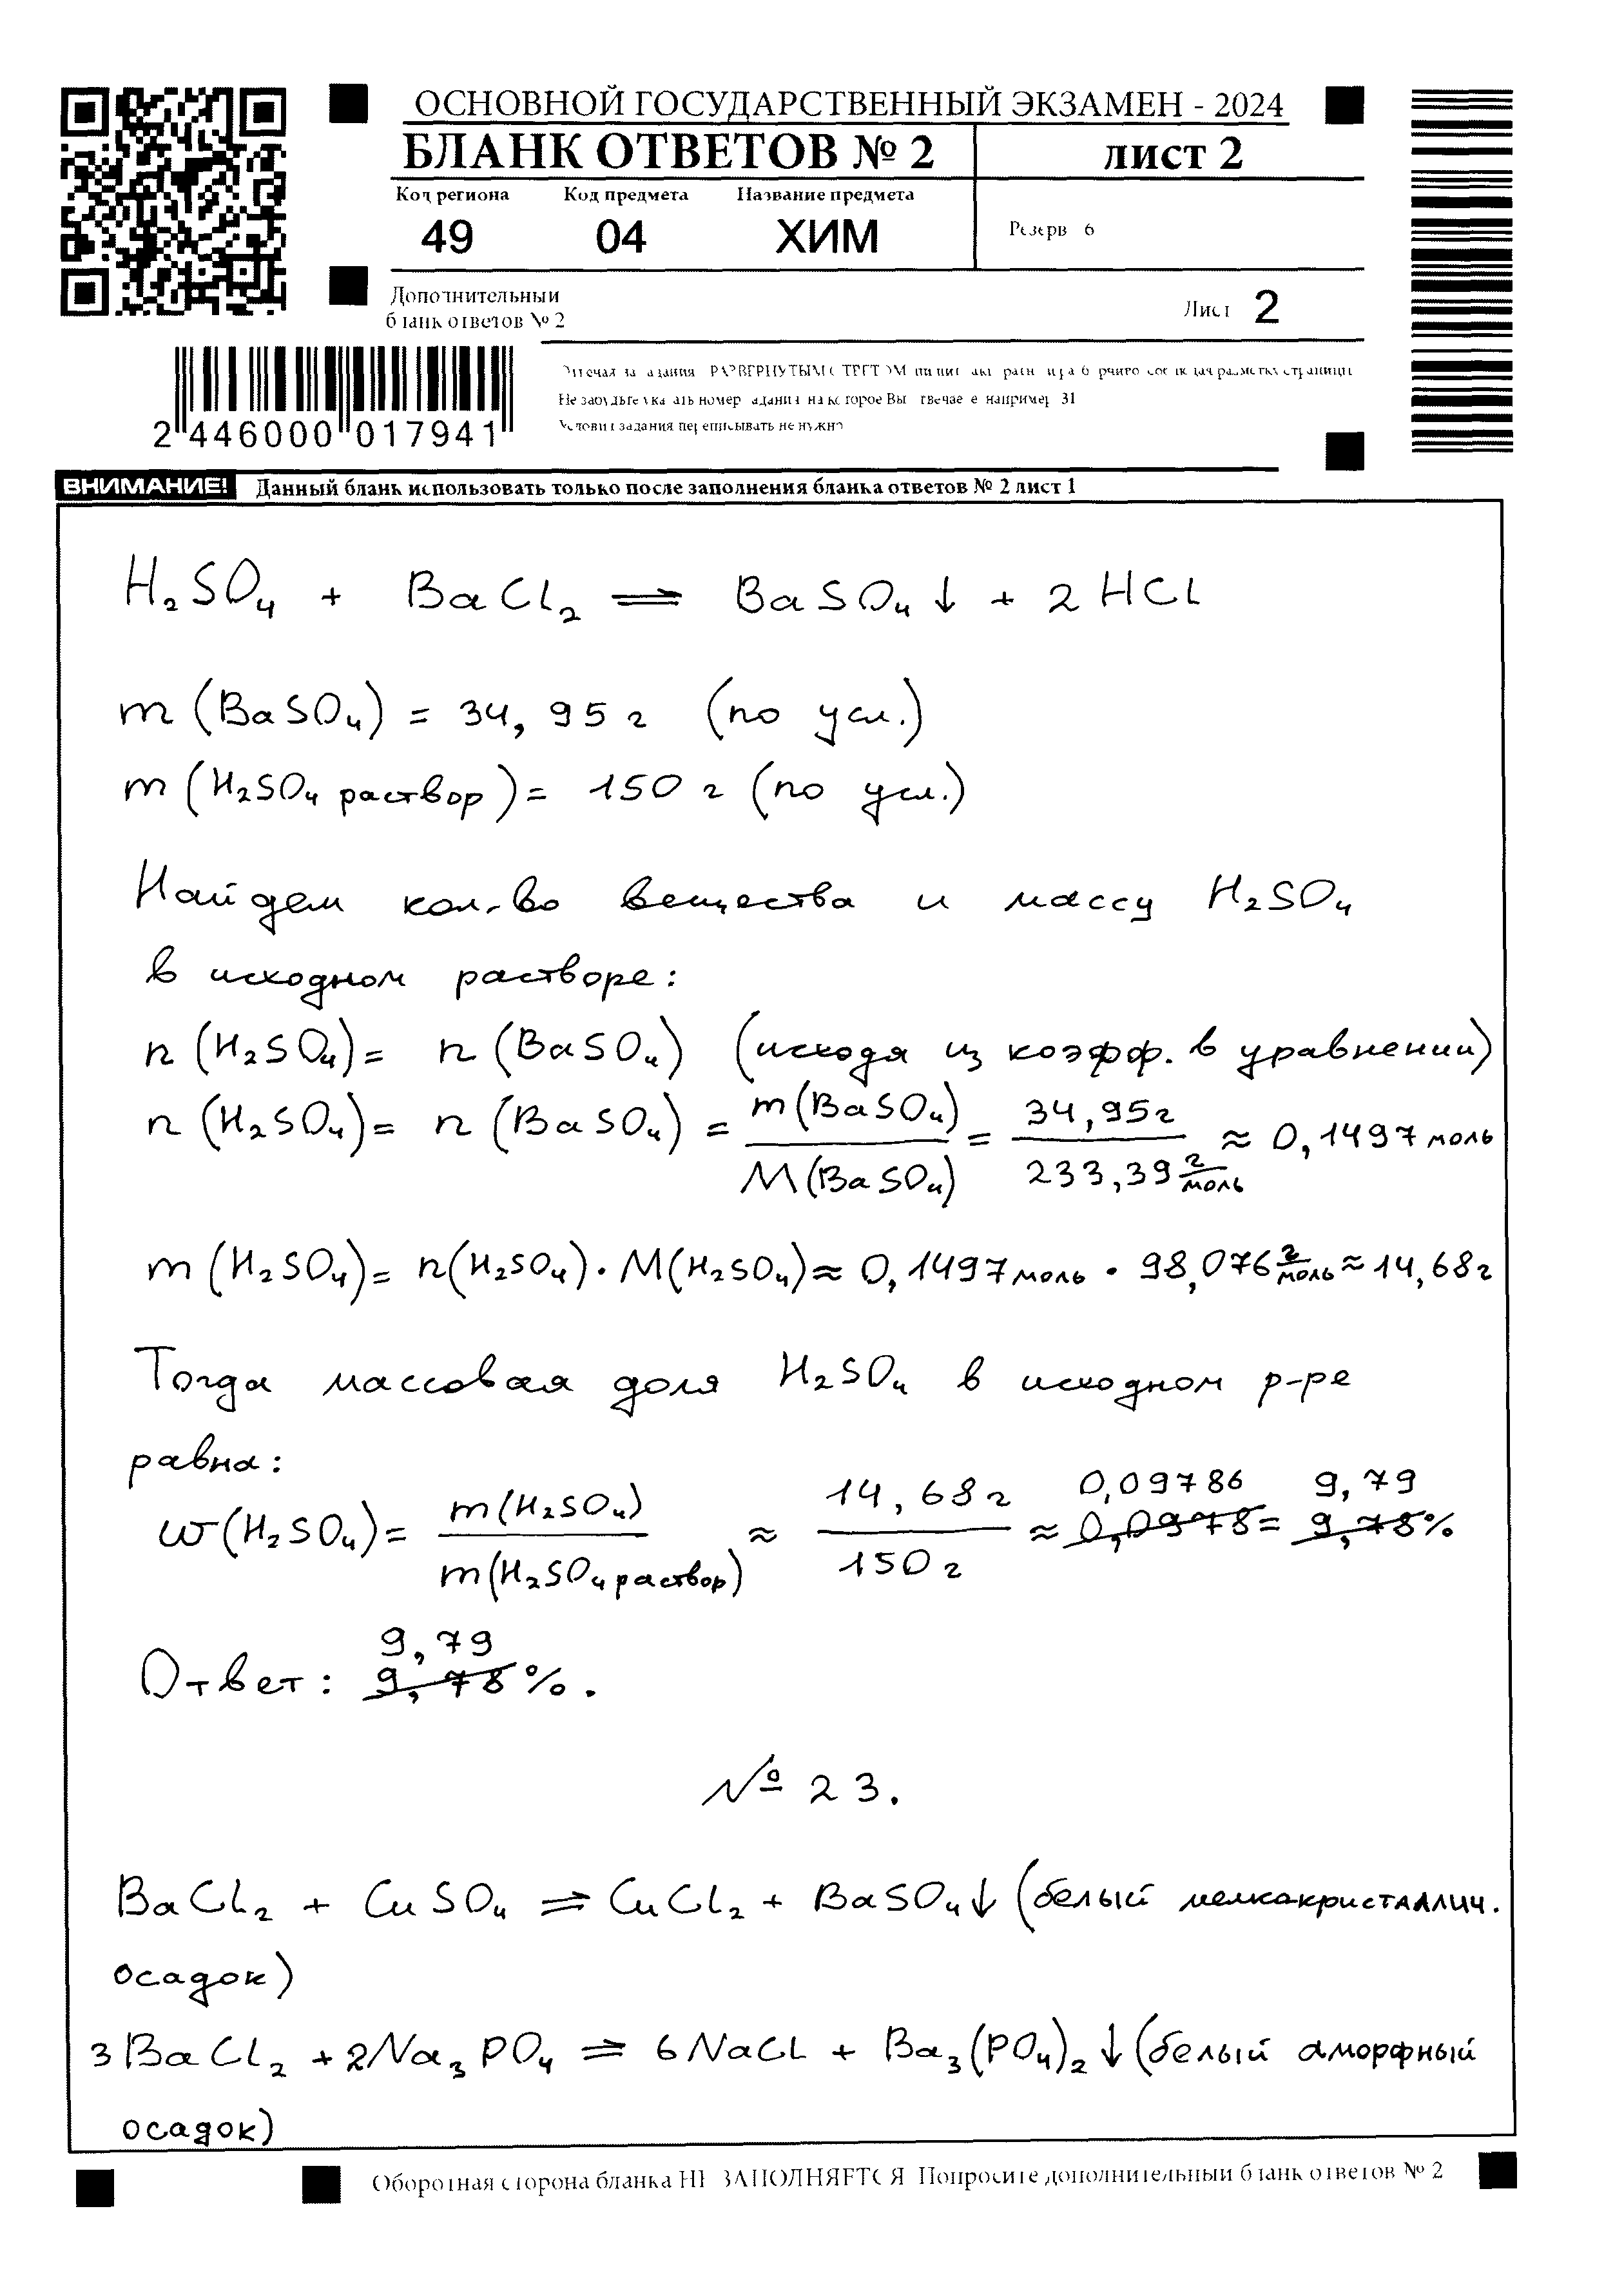 ОСНОВНОЙ ГОСУДАРСТВЕННЫЙ ЭКЗАМЕН - 2024
БЛАНК ОТВЕТОВ № 2 лист 2
Код региона Код предмета Название предмета
49 04 ХИМ
Резерв 6
Дополнительный
бланк ответов № 2
Лист 2
2 446000 017941
Не забудьте указать номер задания на которое Вы отвечаете например 31
Условия задания переписывать не нужно
ВНИМАНИЕ! Данный бланк использовать только после заполнения бланка ответов № 2 лист 1
H₂SO₄ + BaCl₂ ⇌ BaSO₄↓ + 2HCl
m (BaSO₄) = 34,95 г (по усл.)
m (H₂SO₄ раствор) = 150 г (по усл.)
Найдем кол-во вещества и массу H₂SO₄
в исходном растворе:
n (H₂SO₄) = n (BaSO₄) (исходя из коэфф. в уравнении)
n (H₂SO₄) = n (BaSO₄) = m(BaSO₄) / M(BaSO₄) = 34,95г / 233,39 г/моль ≈ 0,1497 моль
m (H₂SO₄) = n(H₂SO₄) · M(H₂SO₄) ≈ 0,1497 моль · 98,076 г/моль ≈ 14,68г
Тогда массовая доля H₂SO₄ в исходном р-ре
равна:
w(H₂SO₄) = m(H₂SO₄) / m(H₂SO₄ раствор) ≈ 14,68 г / 150 г ≈ 0,09786 0,0978 = 9,79 9,78%
Ответ: 9,79 9,78%.
№ 23.
BaCl₂ + CuSO₄ ⇌ CuCl₂ + BaSO₄↓ (белый мелкакристаллич.
осадок)
3BaCl₂ + 2Na₃PO₄ ⇌ 6NaCl + Ba₃(PO₄)₂↓ (белый аморфный
осадок)
Оборотная сторона бланка НЕ ЗАПОЛНЯЕТСЯ Попросите дополнительный бланк ответов № 2